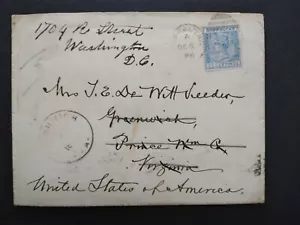 1704 R Street
Washington
D.C.
Mrs T. E. De Witt Veeder,
Greenwich,
Prince Wm Co
Virginia
United States of America.